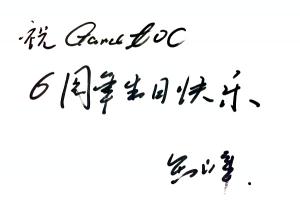 祝 GameLOC
6周年生日快乐、